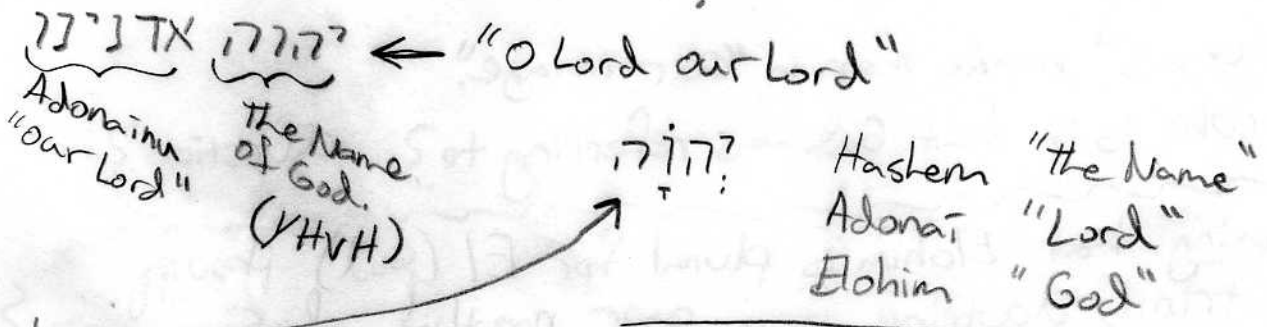 יהוה אדנינו ← "O Lord our Lord"
Adonaīnu
"our Lord"
The Name
of God.
(YHVH)
יְהֹוָה
Hashem "the Name"
Adonaī "Lord"
Elohim "God"